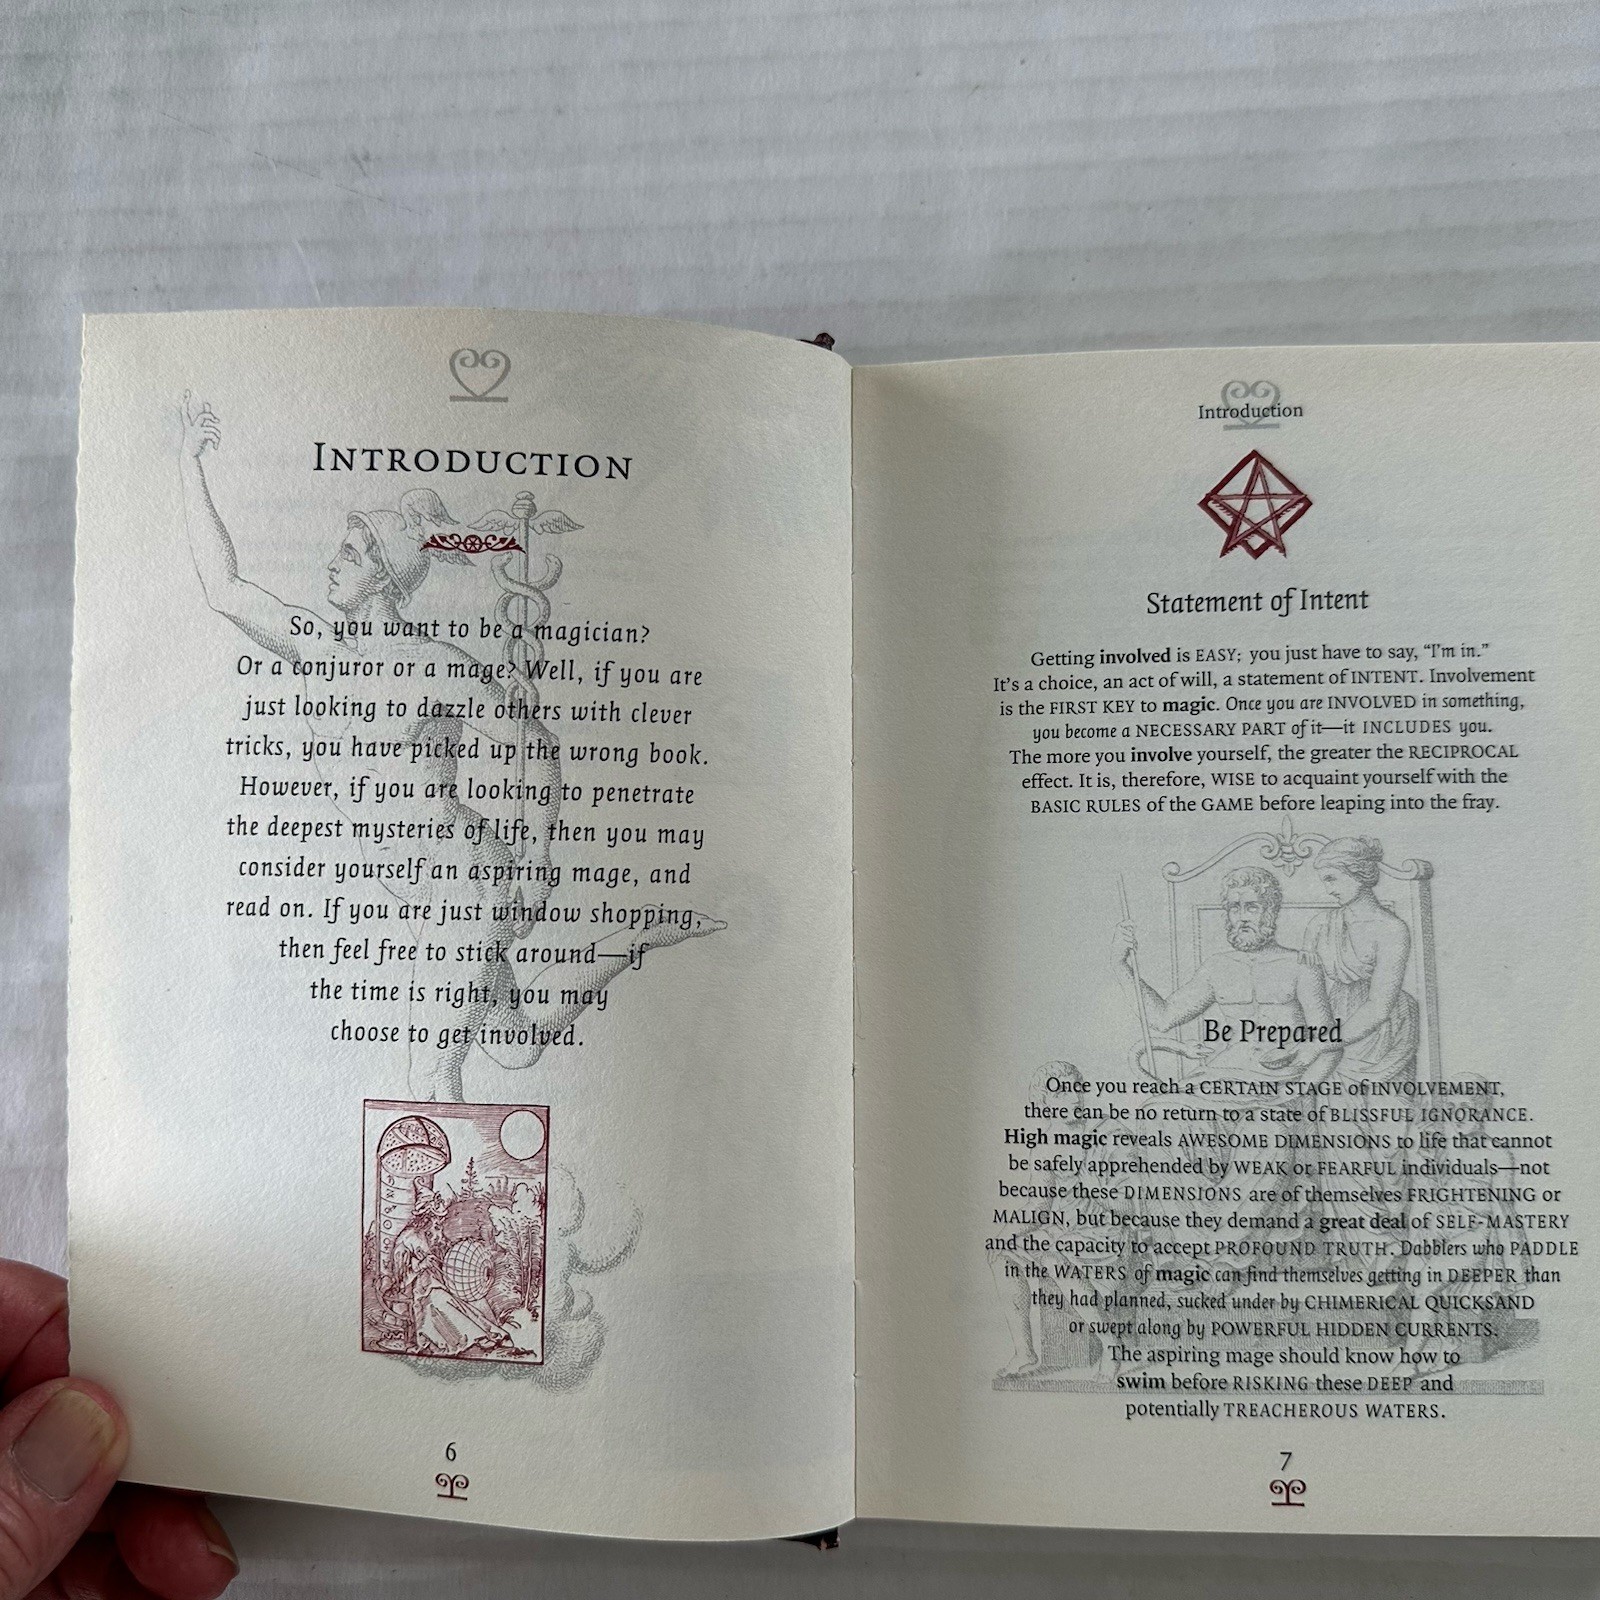 INTRODUCTION
So, you want to be a magician?
Or a conjuror or a mage? Well, if you are
just looking to dazzle others with clever
tricks, you have picked up the wrong book.
However, if you are looking to penetrate
the deepest mysteries of life, then you may
consider yourself an aspiring mage, and
read on. If you are just window shopping,
then feel free to stick around—if
the time is right, you may
choose to get involved.
6
Introduction
Statement of Intent
Getting involved is EASY; you just have to say, “I’m in.”
It’s a choice, an act of will, a statement of INTENT. Involvement
is the FIRST KEY to magic. Once you are INVOLVED in something,
you become a NECESSARY PART of it—it INCLUDES you.
The more you involve yourself, the greater the RECIPROCAL
effect. It is, therefore, WISE to acquaint yourself with the
BASIC RULES of the GAME before leaping into the fray.
Be Prepared
Once you reach a CERTAIN STAGE of INVOLVEMENT,
there can be no return to a state of BLISSFUL IGNORANCE.
High magic reveals AWESOME DIMENSIONS to life that cannot
be safely apprehended by WEAK or FEARFUL individuals—not
because these DIMENSIONS are of themselves FRIGHTENING or
MALIGN, but because they demand a great deal of SELF-MASTERY
and the capacity to accept PROFOUND TRUTH. Dabblers who PADDLE
in the WATERS of magic can find themselves getting in DEEPER than
they had planned, sucked under by CHIMERICAL QUICKSAND
or swept along by POWERFUL HIDDEN CURRENTS.
The aspiring mage should know how to
swim before RISKING these DEEP and
potentially TREACHEROUS WATERS.
7